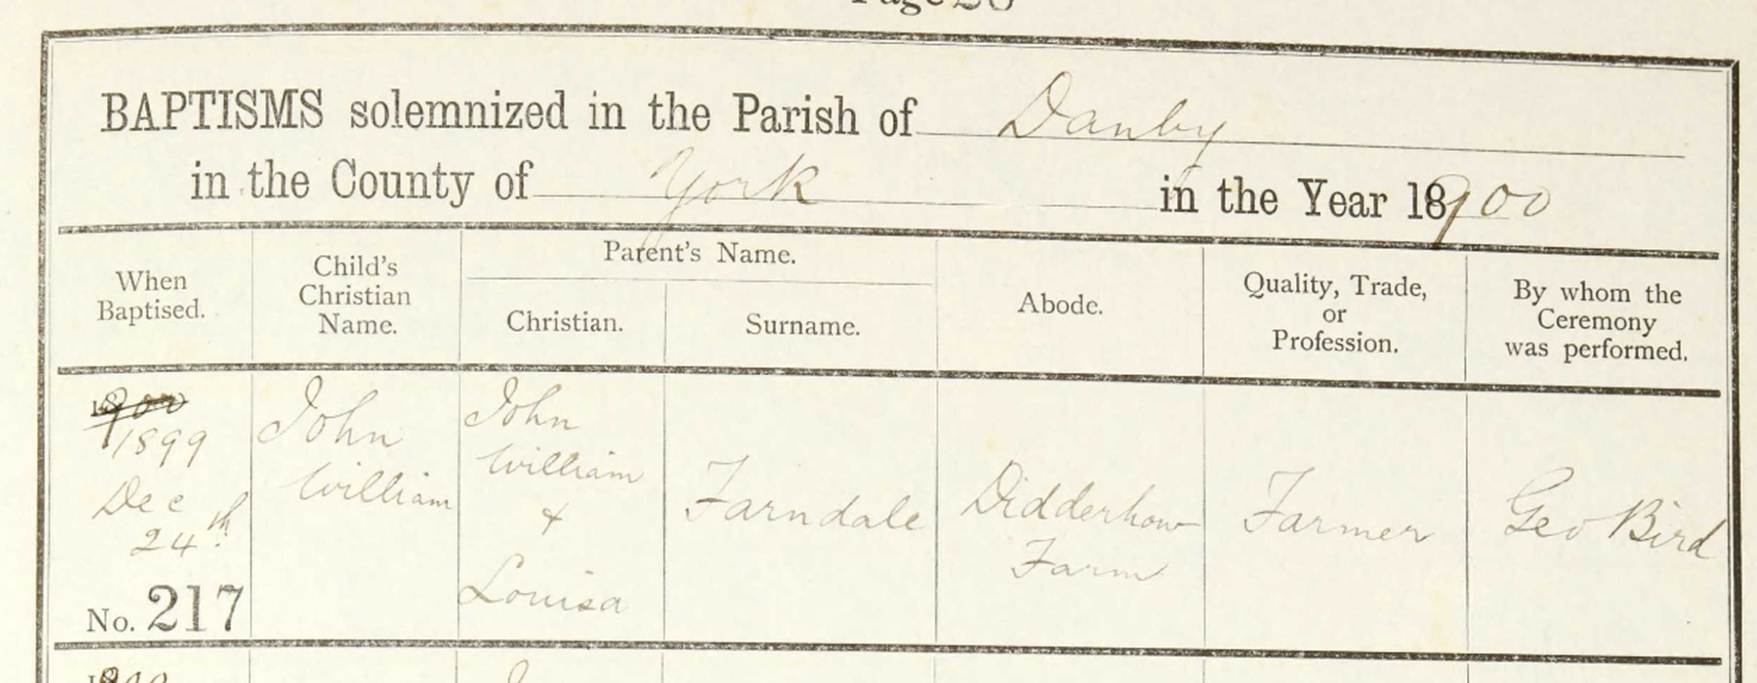 BAPTISMS solemnized in the Parish of Danby
in the County of York in the Year 1900
When Baptised.
Child's Christian Name.
Parent's Name.
Christian.
Surname.
Abode.
Quality, Trade, or Profession.
By whom the Ceremony was performed.
1899
Dec
24th
No. 217
John
William
John
William
&
Louisa
Farndale
Didderhow
Farm
Farmer
Geo Bird